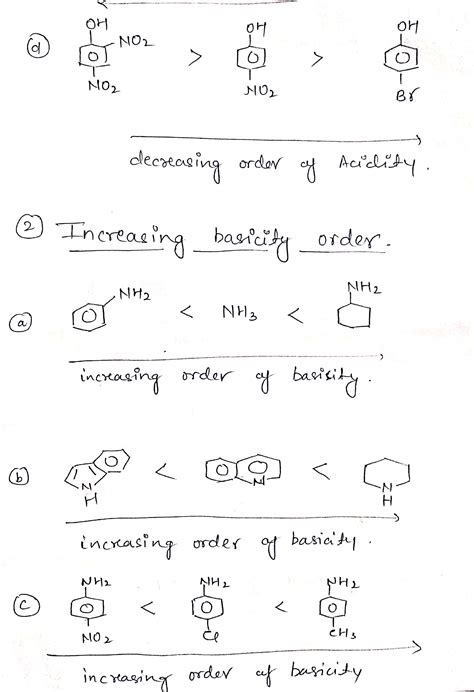 OH OH OH
(d) NO2 > >
NO2 NO2 Br
decreasing order of Acidity.
(2) Increasing basicity order.
NH2 NH2
(a) < NH3 <
increasing order of basisity.
(b) < <
N N N
H H
increasing order of basicity.
NH2 NH2 NH2
(c) < <
NO2 Cl CH3
increasing order of basicity